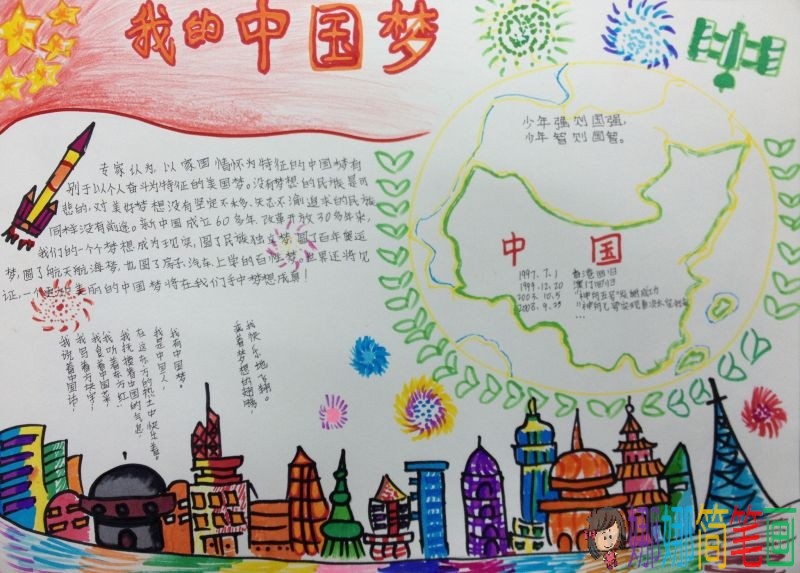 我的中国梦
少年强则国强，
少年智则国智。
专家认为，以家国情怀为特征的中国梦有
别于以个人奋斗为特征的美国梦。没有梦想的民族是可
悲的，对美好梦想没有坚定不移、矢志不渝追求的民族
同样没有前途。新中国成立60多年、改革开放30多年来，
我们的一个个梦想成为现实，圆了民族独立梦，圆了百年奥运
梦，圆了航天航海梦，也圆了房子、汽车、上学的百姓梦。世界还将见
证，一个更加美丽的中国梦将在我们手中梦想成真！
中国
1997.7.1 香港回归
1999.12.20 澳门回归
2003.10.5 "神舟五号"发射成功
2008.9.25 "神舟七号"实现首次太空行走
...
我有中国梦。
我是中国人！
在这东方的热土中快乐着。
我抚摸着中国的气息
我听着东方红！
我食着中国菜！
我写着方块字！
我说着中国话！
我快乐地飞翔。
乘着梦想的翅膀
娜娜简笔画